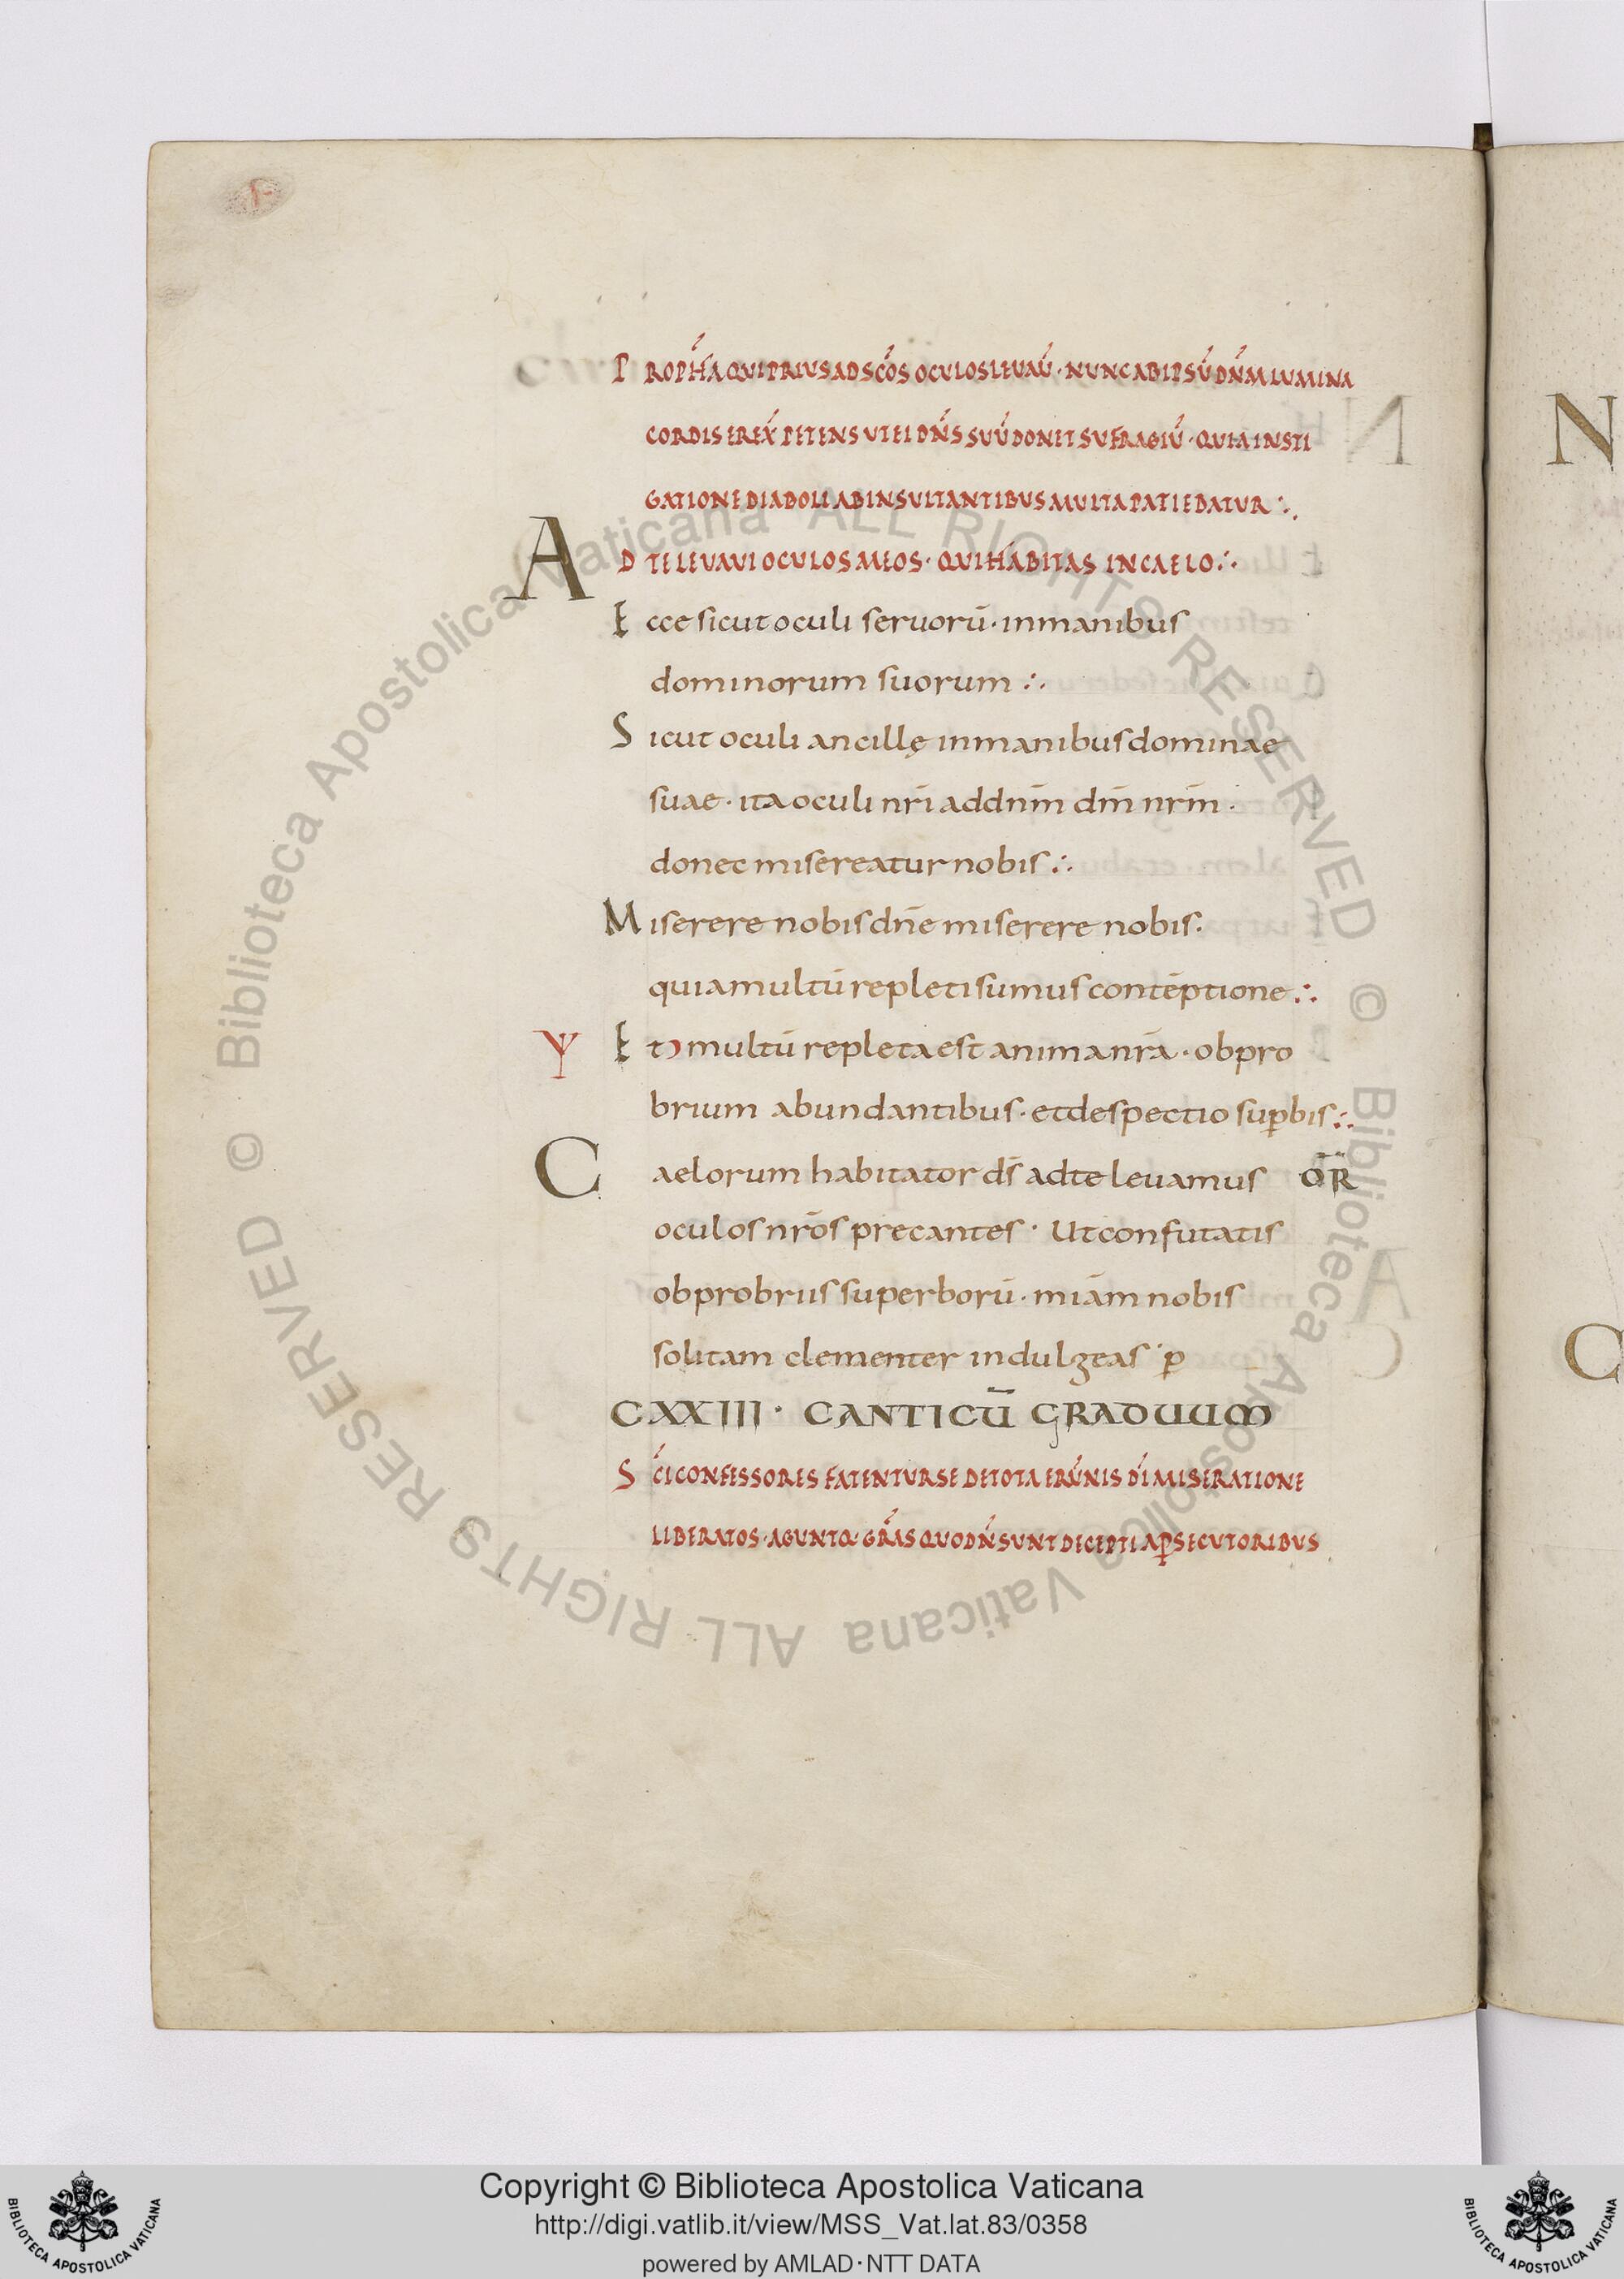 PROPH́A QUI PRIUS AD SC̄OS OCULOS LEUAU̇́ · NUNC AB IPSU̇́ DN̄M LUMINA
CORDIS EREX́ PETENS UT EI DN̄S SUÚ DONET SUFRAGIÚ · QUIA INSTI
GATIONE DIABOLI AB INSULTANTIBUS MULTA PATIEBATUR ∴
AD TE LEUAUI OCULOS MEOS · QUI HABITAS IN CAELO ∴
Ecce sicut oculi seruorū · in manibus
dominorum suorum ∴
Sicut oculi ancillę in manibus dominae
suae · ita oculi nr̄i ad dn̄m dm̄ nrm̄ ·
donec misereatur nobis ∴
Miserere nobis dn̄e miserere nobis ·
quia multū repleti sumus contēptione ∴
Ψ Et multū repleta est anima nr̄a · obpro
brium abundantibus · et despectio suꝑbis ∴
Caelorum habitator ds̄ ad te leuamus OR̄
oculos nr̄os precantes · Ut confutatis
obprobriis superborū · miām nobis
solitam clementer indulgeas · ꝑ
CXXIII · CANTICŪ GRADUUM
SĆI CONFESSORES FATENTUR SE DE TOTA ERÚNIS DÍ MISERATIONE
LIBERATOS · AGUNTQ· GŔAS QUOD Ń SUNT DECEPTI A ꝐSECUTORIBUS
N
C
© Biblioteca Apostolica Vaticana ALL RIGHTS RESERVED © Biblioteca Apostolica Vaticana ALL RIGHTS RESERVED
Copyright © Biblioteca Apostolica Vaticana
http://digi.vatlib.it/view/MSS_Vat.lat.83/0358
powered by AMLAD · NTT DATA
BIBLIOTECA APOSTOLICA VATICANA
BIBLIOTECA APOSTOLICA VATICANA